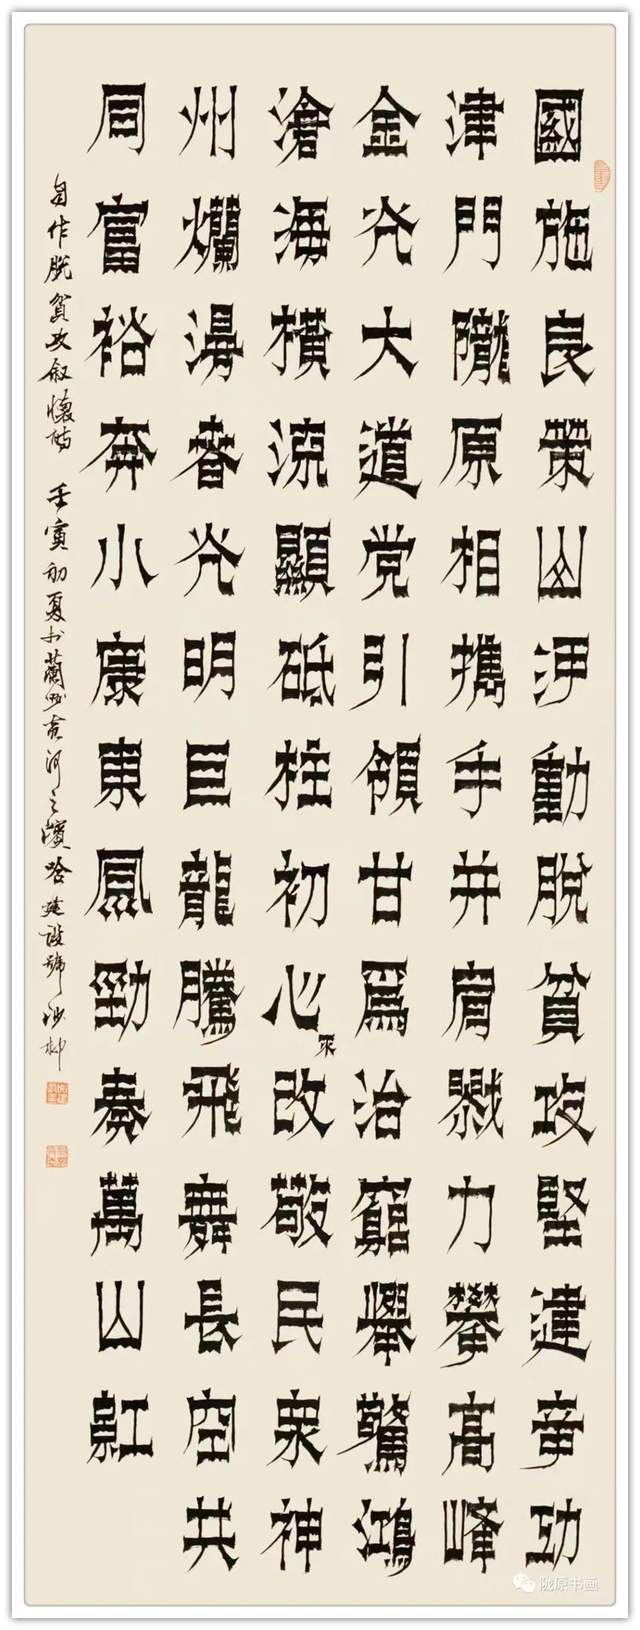 國施良策山河動脫貧攻堅建奇功
津門隴原相攜手并肩戮力攀高峰
金光大道党引領甘爲治窮舉驚鴻
滄海橫流顯砥柱初心不改敬民衆神
州爛漫春光明巨龍騰飛舞長空共
同富裕奔小康東風勁奏萬山紅
自作脫貧攻叙懷詩 壬寅初夏於蘭州黄河之濱哈建設號沙柳
陇原书画